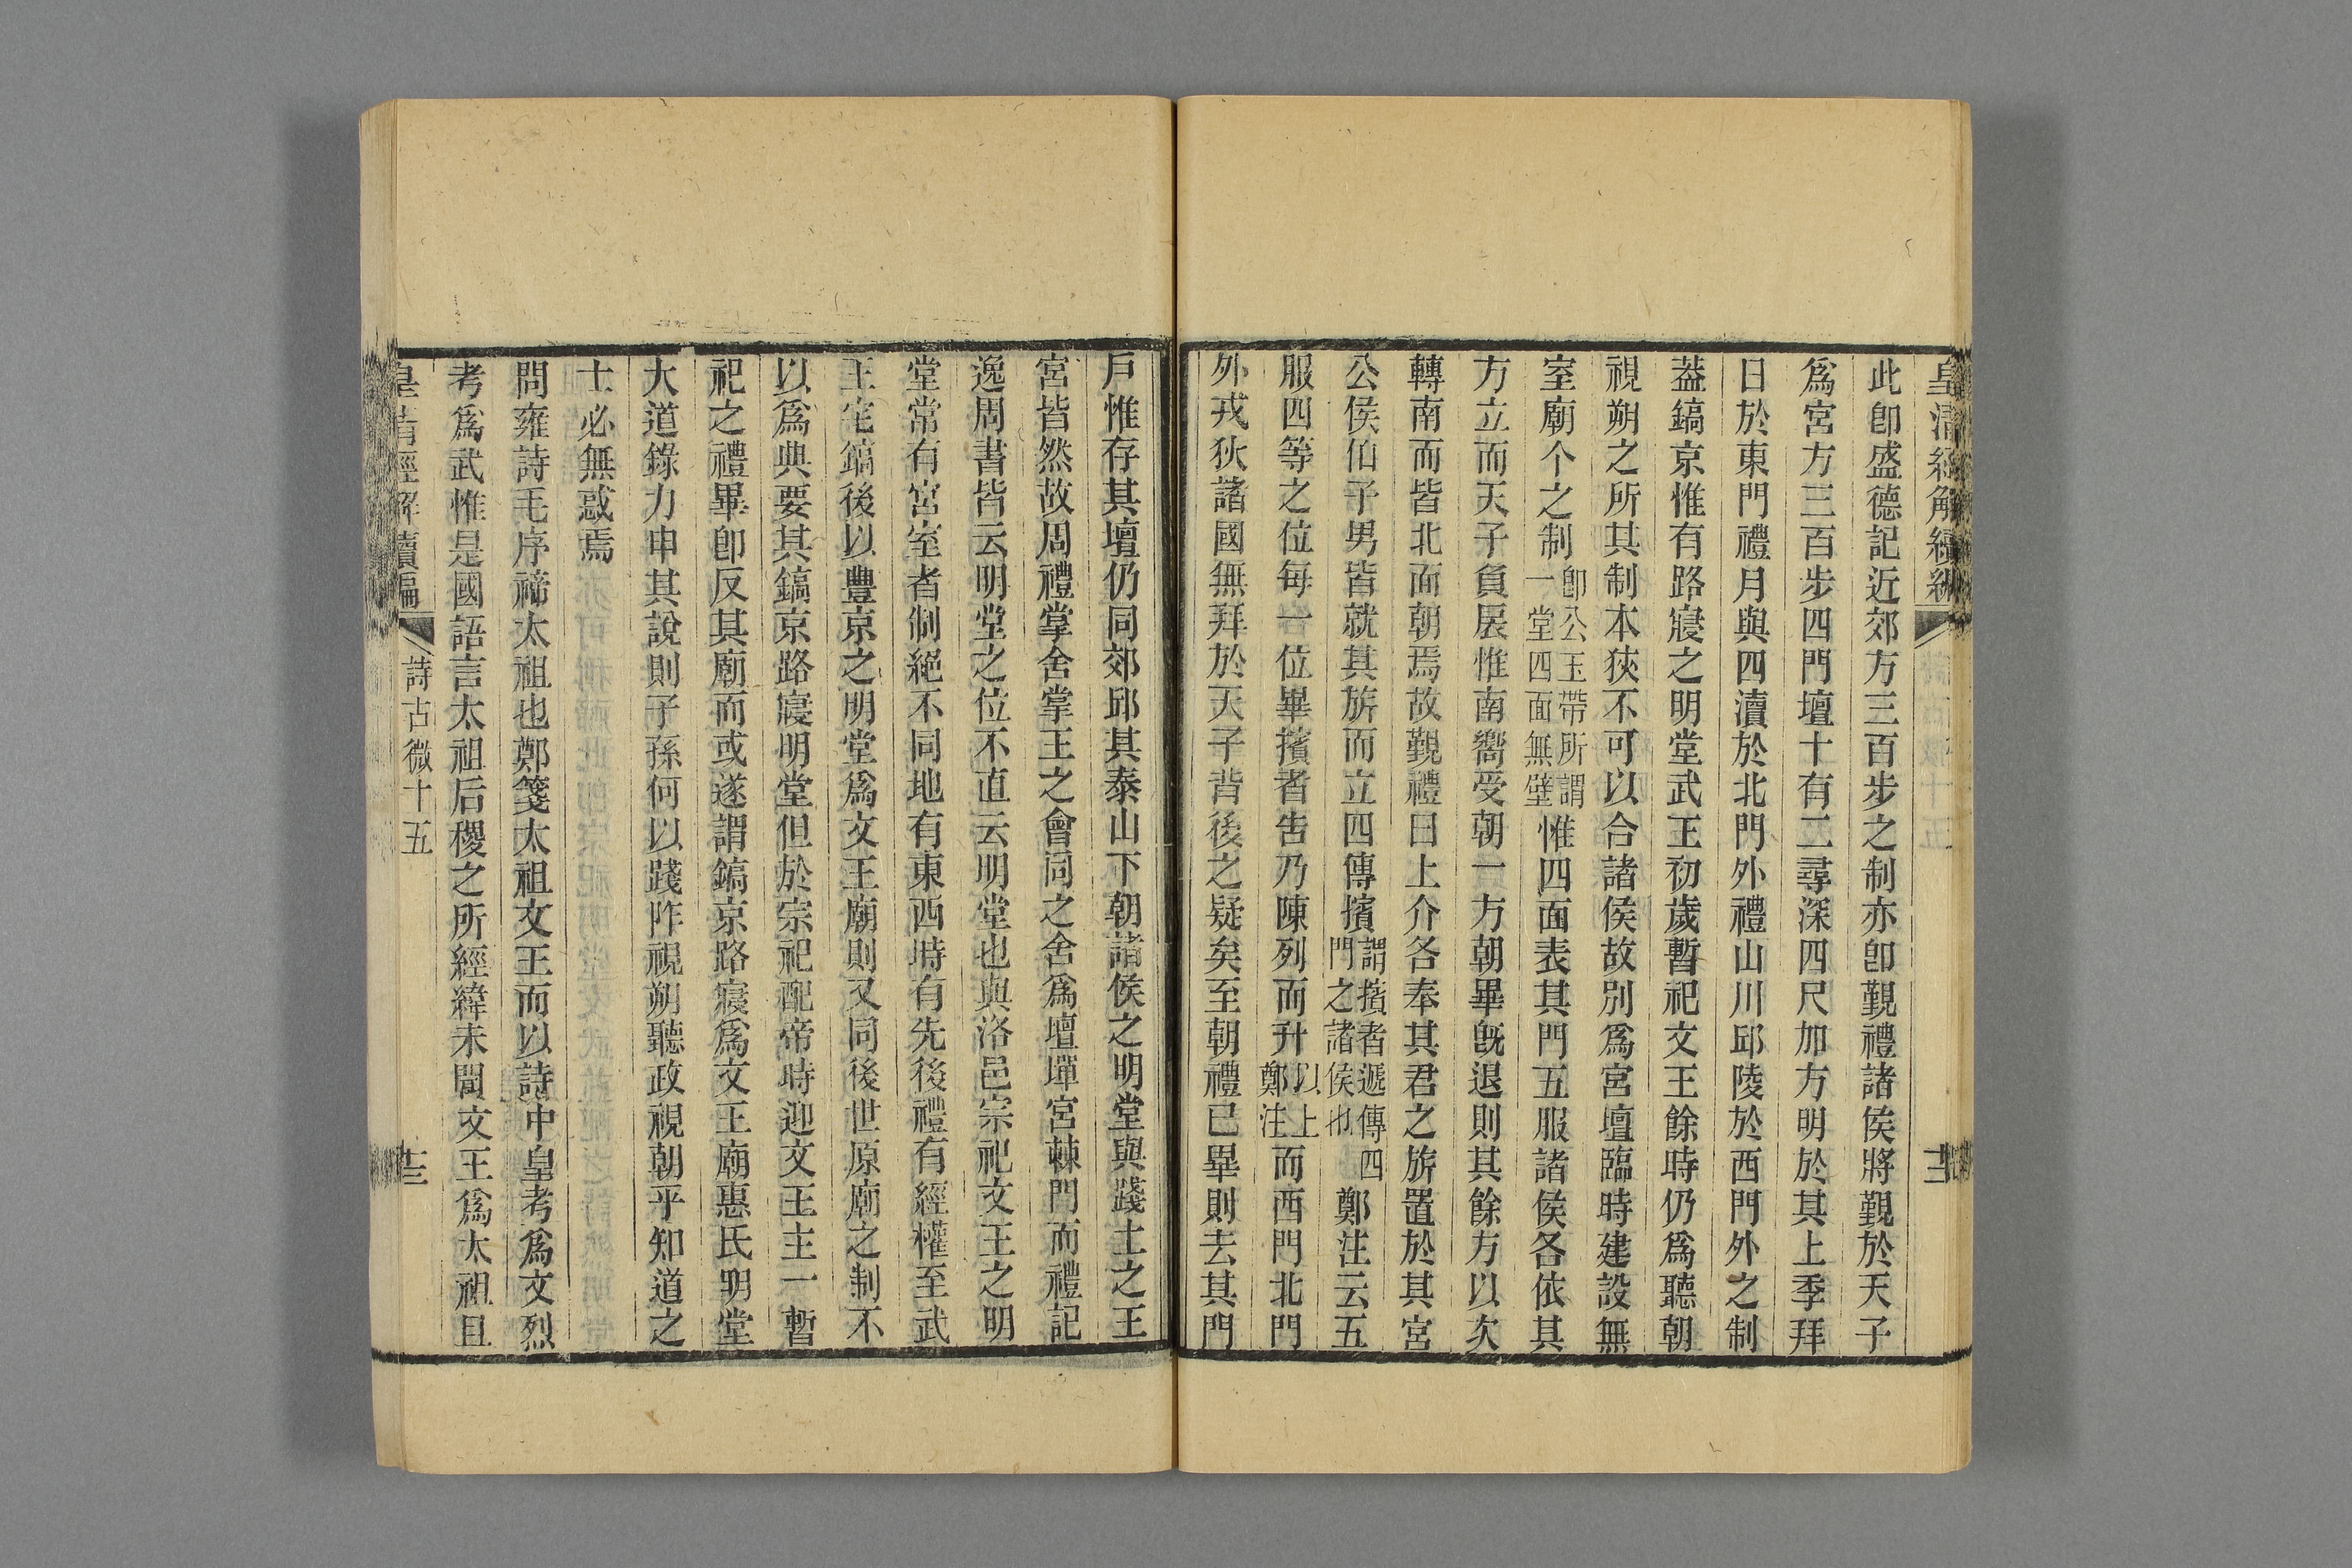 皇清經解續編
十二
此卽盛德記近郊方三百步之制亦卽覲禮諸侯將覲於天子
爲宮方三百步四門壇十有二尋深四尺加方明於其上季拜
日於東門禮月與四瀆於北門外禮山川邱陵於西門外之制
葢鎬京惟有路寢之明堂武王初歲暫祀文王餘時仍爲聽朝
視朔之所其制本狹不可以合諸侯故別爲宮壇臨時建設無
室廟个之制卽公玉帶所謂一堂四面無壁惟四面表其門五服諸侯各依其
方立而天子負扆惟南嚮受朝一方朝畢旣退則其餘方以次
轉南而皆北面朝焉故覲禮曰上介各奉其君之旂置於其宮
公侯伯子男皆就其旂而立四傳擯謂擯者遞傳四門之諸侯也鄭注云五
服四等之位每一位畢擯者告乃陳列而升以上鄭注而西門北門
外戎狄諸國無拜於天子背後之疑矣至朝禮已畢則去其門
戶惟存其壇仍同郊邱其泰山下朝諸侯之明堂與踐土之王
宮皆然故周禮掌舍掌王之會同之舍爲壇墠宮棘門而禮記
逸周書皆云明堂之位不直云明堂也與洛邑宗祀文王之明
堂常有宮室者制絕不同地有東西時有先後禮有經權至武
王宅鎬後以豐京之明堂爲文王廟則又同後世原廟之制不
以爲典要其鎬京路寢明堂但於宗祀配帝時迎文王主一暫
祀之禮畢卽反其廟而或遂謂鎬京路寢爲文王廟惠氏明堂
大道錄力申其說則子孫何以踐阼視朔聽政視朝乎知道之
士必無惑焉
問雍詩毛序禘太祖也鄭箋太祖文王而以詩中皇考爲文烈
考爲武惟是國語言太祖后稷之所經緯未聞文王爲太祖且
皇清經解續編
詩古微十五
十三